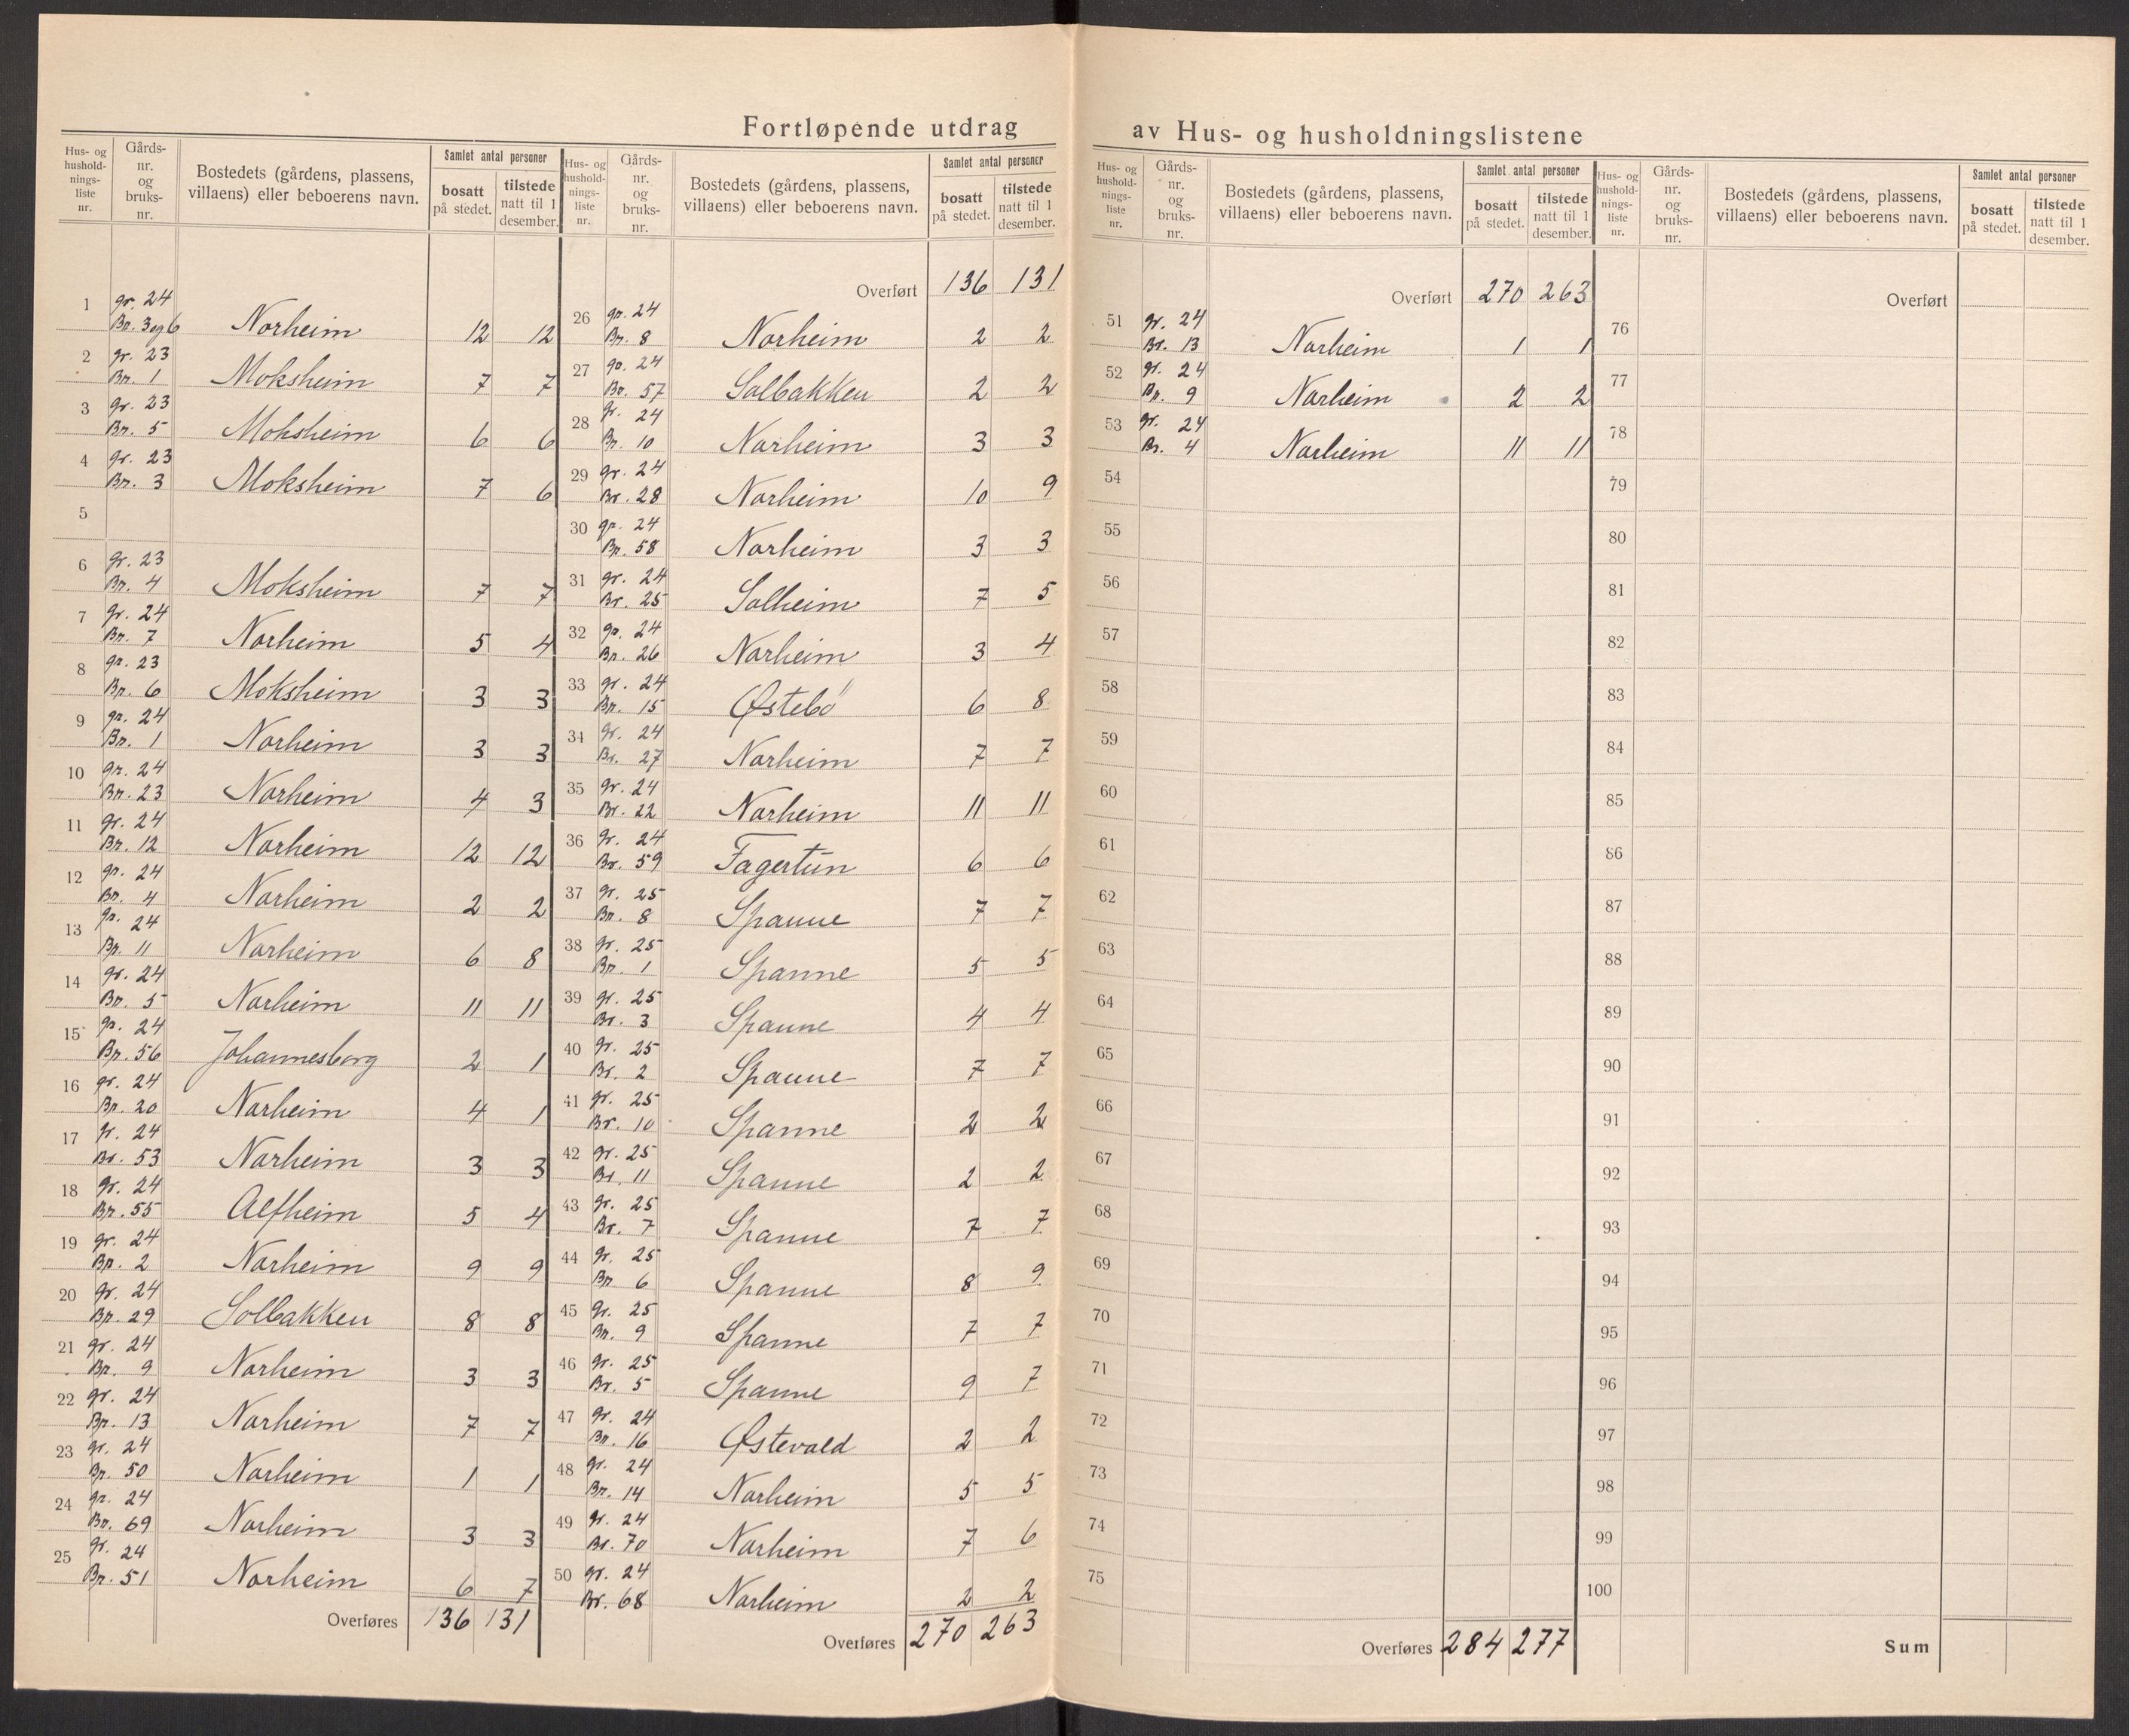 Fortløpende utdrag av Hus- og husholdningslistene
Hus- og hushold-nings-liste nr. | Gårds-nr. og bruks-nr. | Bostedets (gårdens, plassens, villaens) eller beboerens navn. | Samlet antal personer | bosatt på stedet. | tilstede natt til 1 desember.
1 gr. 24 Br. 3 og 6 Norheim 12 12
2 gr. 23 Br. 1 Moksheim 7 7
3 gr. 23 Br. 5 Moksheim 6 6
4 gr. 23 Br. 3 Moksheim 7 6
5
6 gr. 23 Br. 4 Moksheim 7 7
7 gr. 24 Br. 7 Norheim 5 4
8 gr. 23 Br. 6 Moksheim 3 3
9 gr. 24 Br. 1 Norheim 3 3
10 gr. 24 Br. 23 Norheim 4 3
11 gr. 24 Br. 12 Norheim 12 12
12 gr. 24 Br. 4 Norheim 2 2
13 gr. 24 Br. 11 Norheim 6 8
14 gr. 24 Br. 5 Norheim 11 11
15 gr. 24 Br. 56 Johannesborg 2 1
16 gr. 24 Br. 20 Norheim 4 1
17 gr. 24 Br. 53 Norheim 3 3
18 gr. 24 Br. 55 Alfheim 5 4
19 gr. 24 Br. 2 Norheim 9 9
20 gr. 24 Br. 29 Solbakken 8 8
21 gr. 24 Br. 9 Norheim 3 3
22 gr. 24 Br. 13 Norheim 7 7
23 gr. 24 Br. 50 Norheim 1 1
24 gr. 24 Br. 69 Norheim 3 3
25 gr. 24 Br. 51 Norheim 6 7
Overføres 136 131
Hus- og hushold-nings-liste nr. | Gårds-nr. og bruks-nr. | Bostedets (gårdens, plassens, villaens) eller beboerens navn. | Samlet antal personer | bosatt på stedet. | tilstede natt til 1 desember.
Overført 136 131
26 gr. 24 Br. 8 Norheim 2 2
27 gr. 24 Br. 57 Solbakken 2 2
28 gr. 24 Br. 10 Norheim 3 3
29 gr. 24 Br. 28 Norheim 10 9
30 gr. 24 Br. 58 Norheim 3 3
31 gr. 24 Br. 25 Solheim 7 5
32 gr. 24 Br. 26 Norheim 3 4
33 gr. 24 Br. 15 Østebö 6 8
34 gr. 24 Br. 27 Norheim 7 7
35 gr. 24 Br. 22 Norheim 11 11
36 gr. 24 Br. 59 Fagertun 6 6
37 gr. 25 Br. 8 Spanne 7 7
38 gr. 25 Br. 1 Spanne 5 5
39 gr. 25 Br. 3 Spanne 4 4
40 gr. 25 Br. 2 Spanne 7 7
41 gr. 25 Br. 10 Spanne 2 2
42 gr. 25 Br. 11 Spanne 2 2
43 gr. 25 Br. 7 Spanne 7 7
44 gr. 25 Br. 6 Spanne 8 9
45 gr. 25 Br. 9 Spanne 7 7
46 gr. 25 Br. 5 Spanne 9 7
47 gr. 24 Br. 16 Østevold 2 2
48 gr. 24 Br. 14 Norheim 5 5
49 gr. 24 Br. 70 Norheim 7 6
50 gr. 24 Br. 68 Norheim 2 2
Overføres 270 263
Hus- og hushold-nings-liste nr. | Gårds-nr. og bruks-nr. | Bostedets (gårdens, plassens, villaens) eller beboerens navn. | Samlet antal personer | bosatt på stedet. | tilstede natt til 1 desember.
Overført 270 263
51 gr. 24 Br. 13 Norheim 1 1
52 gr. 24 Br. 9 Norheim 2 2
53 gr. 24 Br. 4 Norheim 11 11
54
55
56
57
58
59
60
61
62
63
64
65
66
67
68
69
70
71
72
73
74
75
Overføres 284 277
Hus- og hushold-nings-liste nr. | Gårds-nr. og bruks-nr. | Bostedets (gårdens, plassens, villaens) eller beboerens navn. | Samlet antal personer | bosatt på stedet. | tilstede natt til 1 desember.
Overført
76
77
78
79
80
81
82
83
84
85
86
87
88
89
90
91
92
93
94
95
96
97
98
99
100
Sum